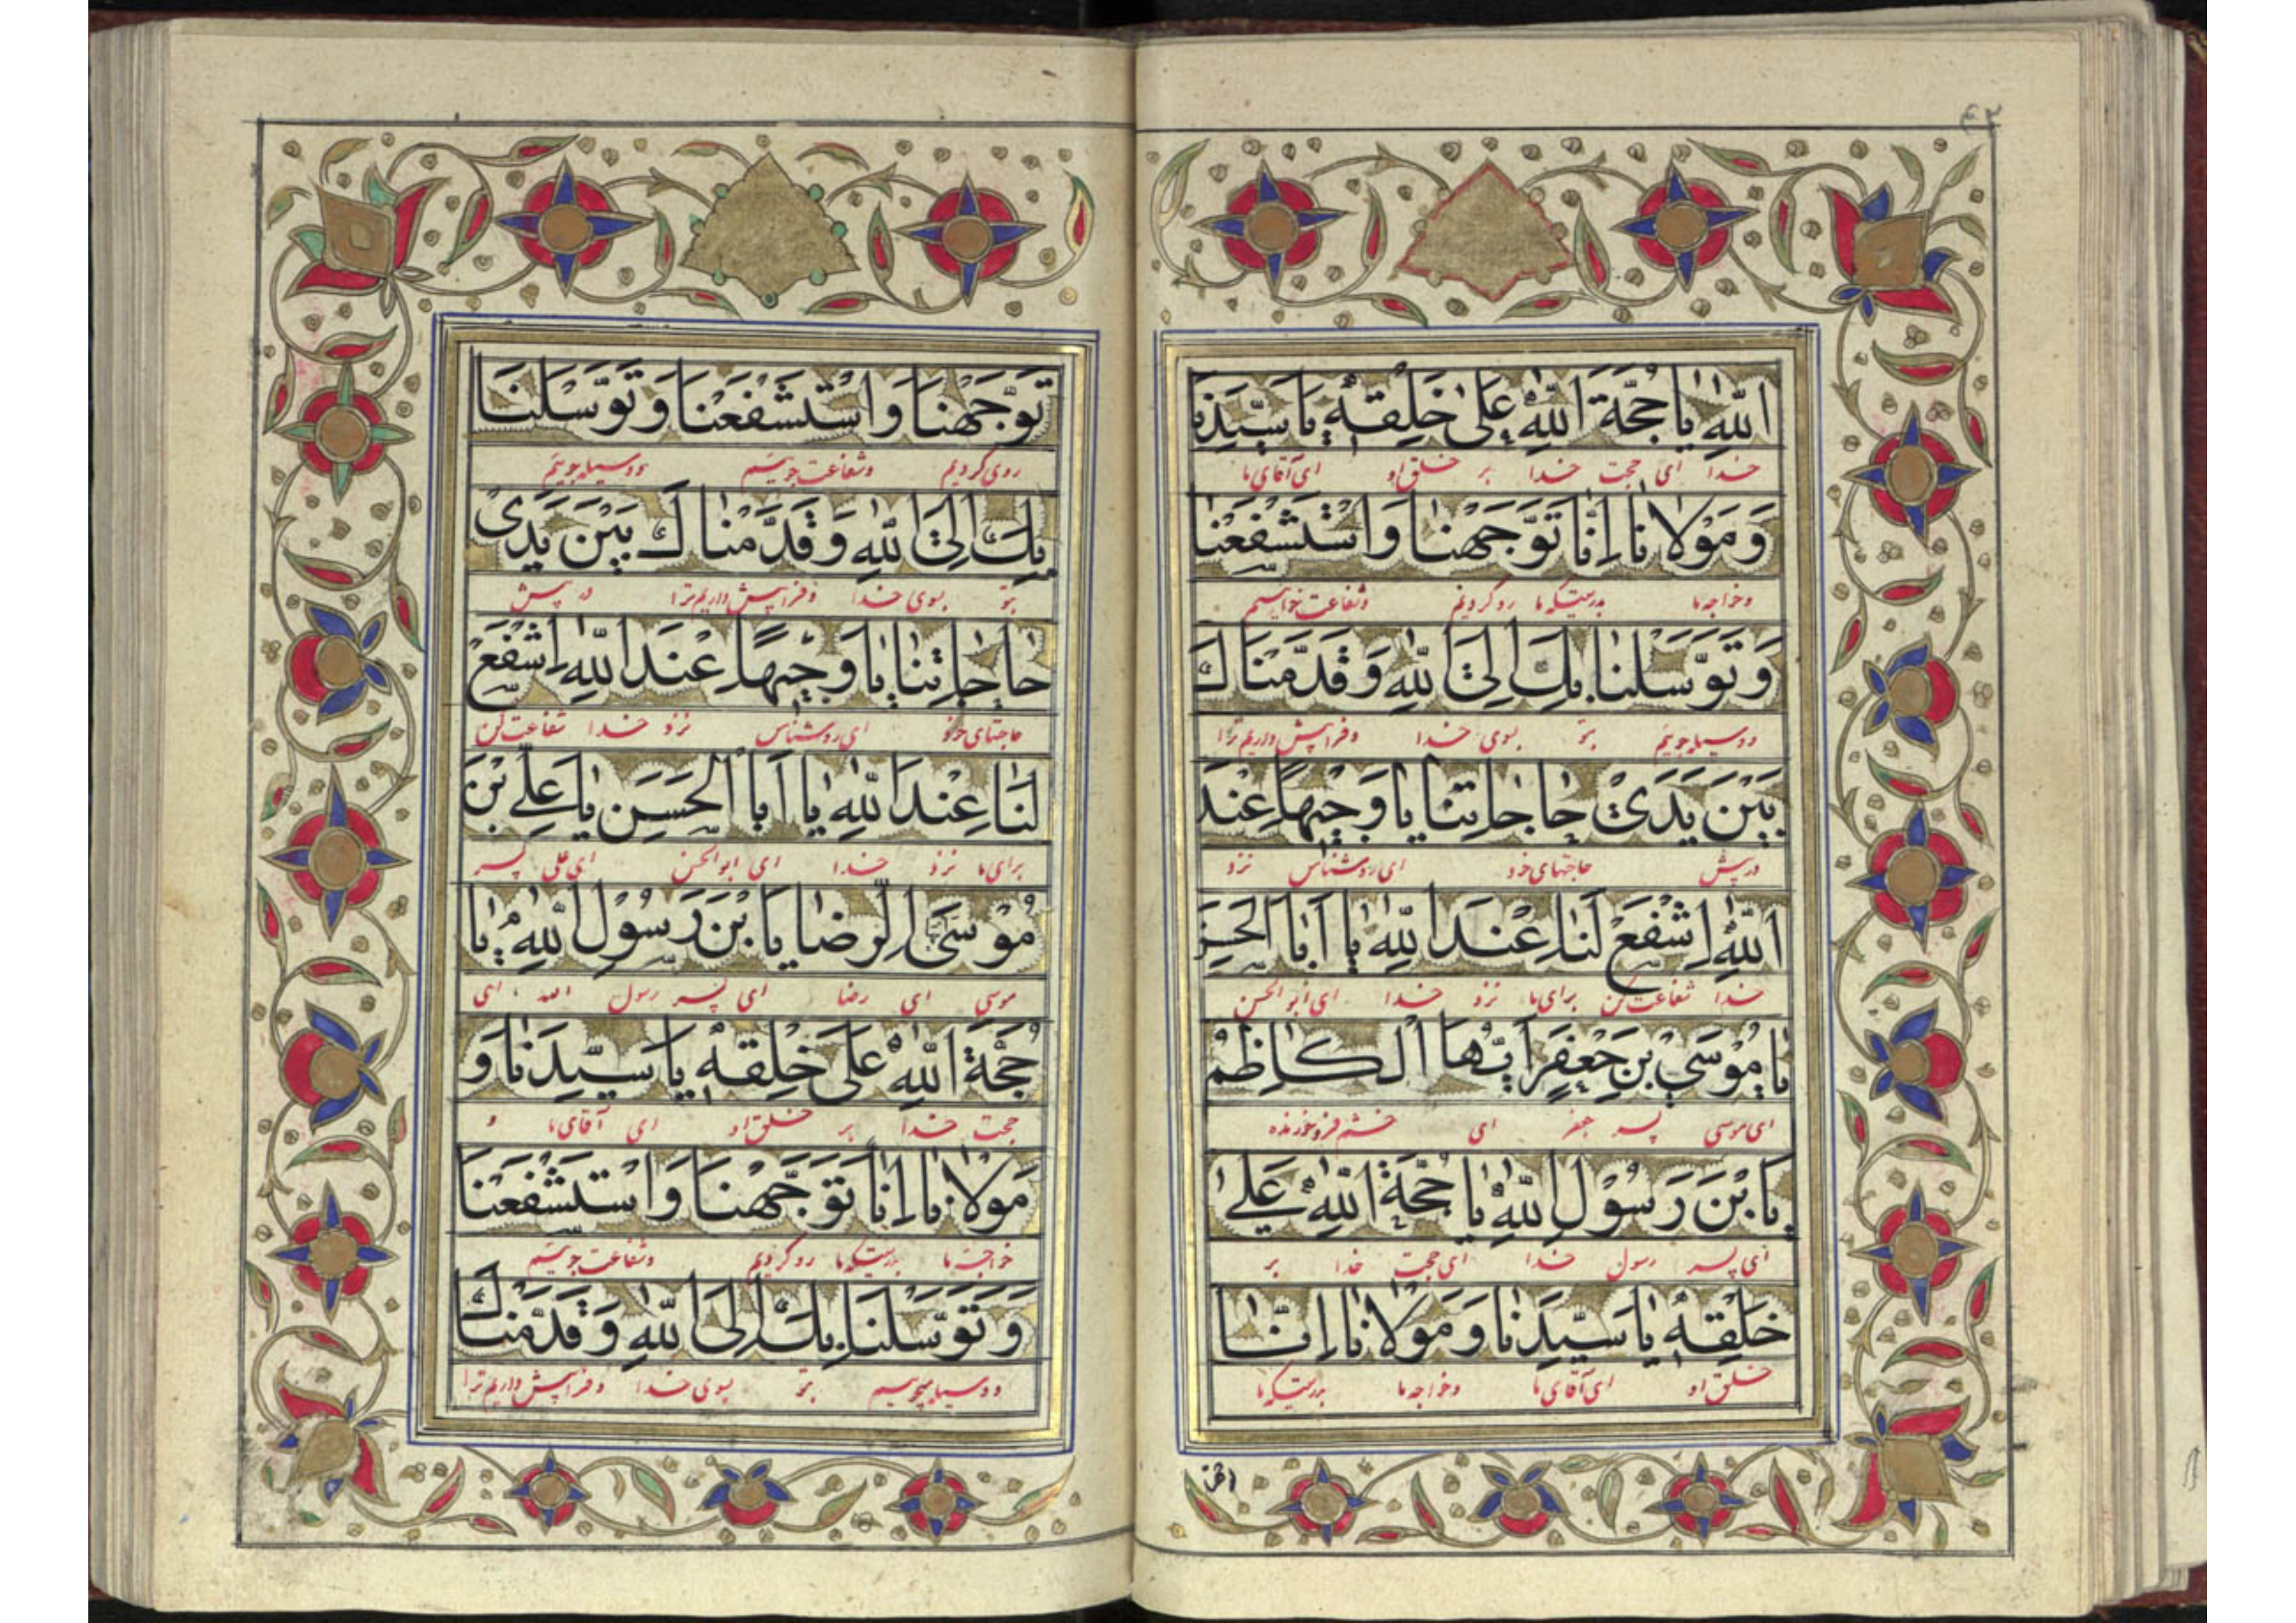 ۴۲
اللّٰهِ يا حُجَّةَ اللّٰهِ عَلىٰ خَلْقِهٖ يا سَيِّدَنا
خدا ای حجت خدا بر خلق او ای آقای ما
وَ مَوْلانا اِنّا تَوَجَّهْنا وَاسْتَشْفَعْنا
وخواجه ما بدرستیکه ما رو کردیم وشفاعت خواهیم
وَ تَوَسَّلْنا بِكَ اِلَى اللّٰهِ وَ قَدَّمْناكَ
ووسیله جوئیم بتو بسوی خدا وفرا پیش داریم ترا
بَيْنَ يَدَيْ حاجاتِنا يا وَجيهاً عِنْدَ
در پیش حاجتهای خود ای روشناس نزد
اللّٰهِ اِشْفَعْ لَنا عِنْدَ اللّٰهِ يا اَبَا الْحَسَنِ
خدا شفاعت کن برای ما نزد خدا ای ابو الحسن
يا مُوْسَى بْنَ جَعْفَرٍ اَيُّهَا الْكاظِمُ
ای موسی پسر جعفر ای خشم فرو خورنده
يَا بْنَ رَسُوْلِ اللّٰهِ يا حُجَّةَ اللّٰهِ عَلىٰ
ای پسر رسول خدا ای حجت خدا بر
خَلْقِهٖ يا سَيِّدَنا وَ مَوْلانا اِنّا
خلق او ای آقای ما وخواجه ما بدرستیکه ما
تَوَجَّهْنا وَاسْتَشْفَعْنا وَ تَوَسَّلْنا
روی کردیم وشفاعت جوئیم ووسیله جوئیم
بِكَ اِلَى اللّٰهِ وَ قَدَّمْناكَ بَيْنَ يَدَىْ
بتو بسوی خدا وفرا پیش داریم ترا در پیش
حاجاتِنا يا وَجيهاً عِنْدَ اللّٰهِ اِشْفَعْ
حاجتهای خود ای روشناس نزد خدا شفاعت کن
لَنا عِنْدَ اللّٰهِ يا اَبَا الْحَسَنِ يا عَلِيَّ بْنَ
برای ما نزد خدا ای ابو الحسن ای علی پسر
مُوْسَى الرِّضا يَا بْنَ رَسُوْلِ اللّٰهِ يا
موسی ای رضا ای پسر رسول الله ای
حُجَّةَ اللّٰهِ عَلىٰ خَلْقِهٖ يا سَيِّدَنا وَ
حجت خدا بر خلق او ای آقای ما و
مَوْلانا اِنّا تَوَجَّهْنا وَاسْتَشْفَعْنا
خواجه ما بدرستیکه ما رو کردیم وشفاعت جوئیم
وَ تَوَسَّلْنا بِكَ اِلَى اللّٰهِ وَ قَدَّمْناكَ
ووسیله جوئیم بتو بسوی خدا وفرا پیش داریم ترا